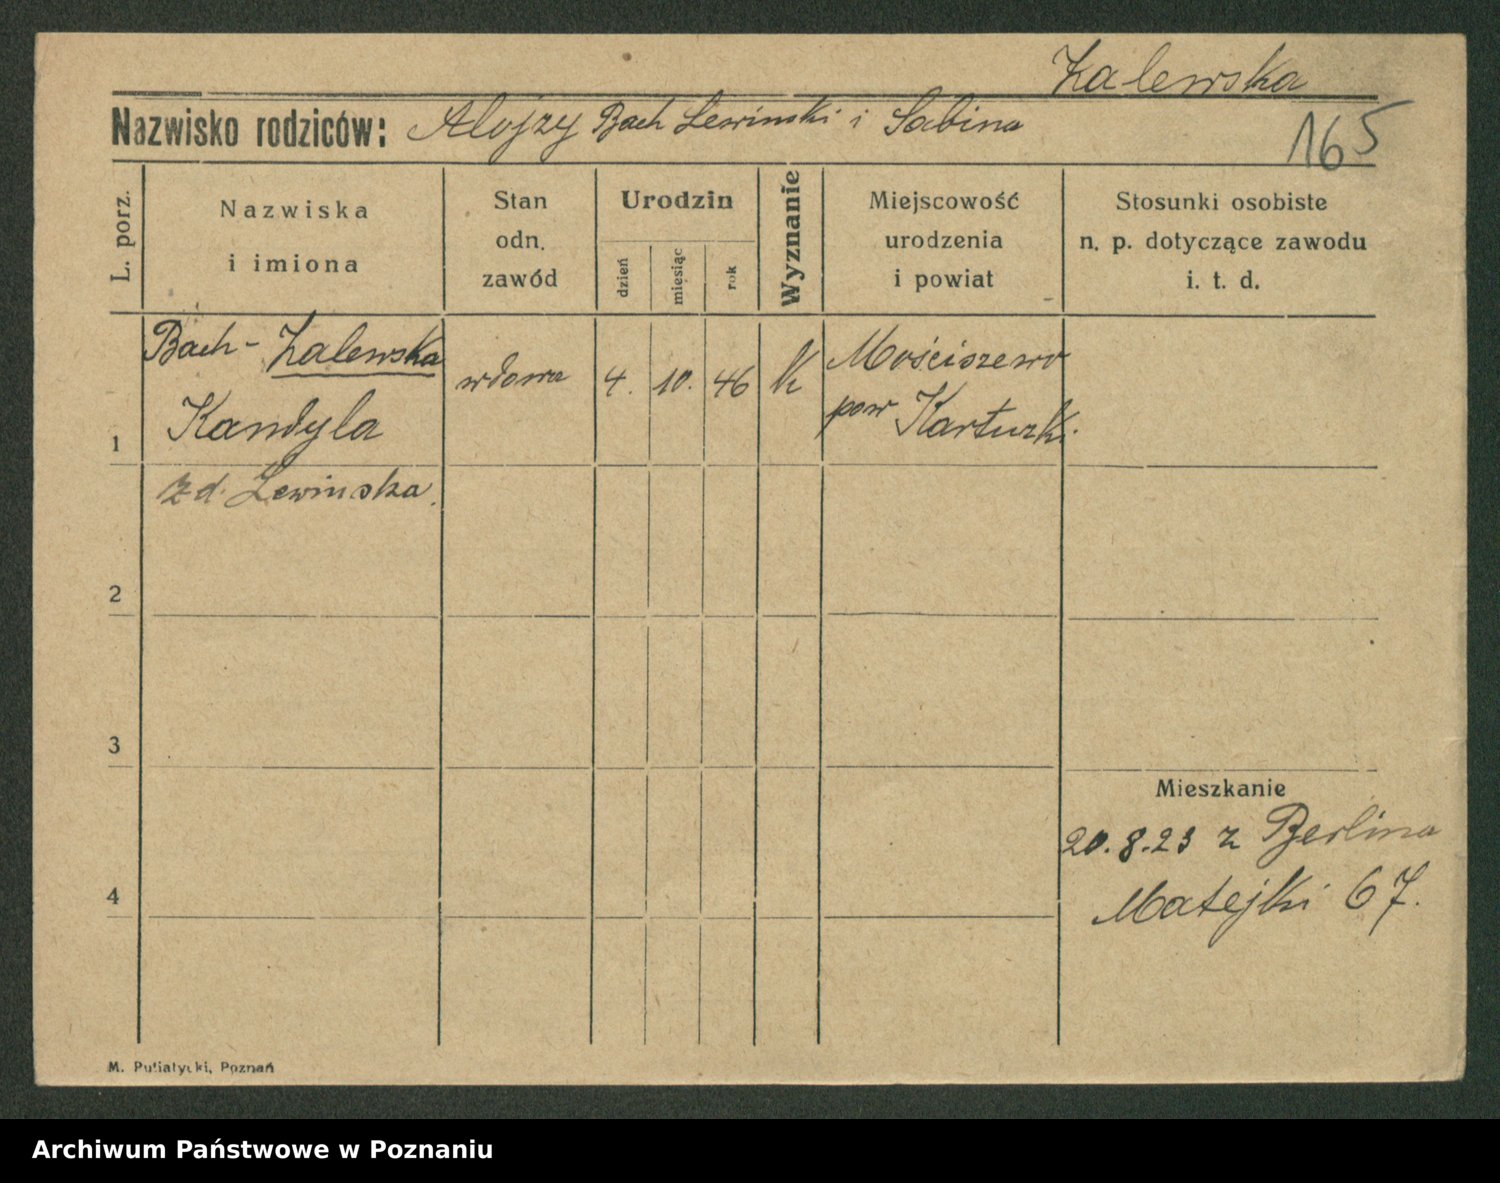 Zalewska
Nazwisko rodziców: Alojzy Bach Lewinski i Sabina
165
L. porz.
Nazwiska
i imiona
Stan
odn.
zawód
Urodzin
dzień
miesiąc
rok
Wyznanie
Miejscowość
urodzenia
i powiat
Stosunki osobiste
n. p. dotyczące zawodu
i. t. d.
1
Bach - Zalewska
Kandyla
zd. Lewinska.
wdowa
4. 10. 46
k
Mościszewo
pow Kartuzki.
2
3
4
Mieszkanie
20.8.23 z Berlina
Matejki 67.
M. Putiatycki, Poznań
Archiwum Państwowe w Poznaniu